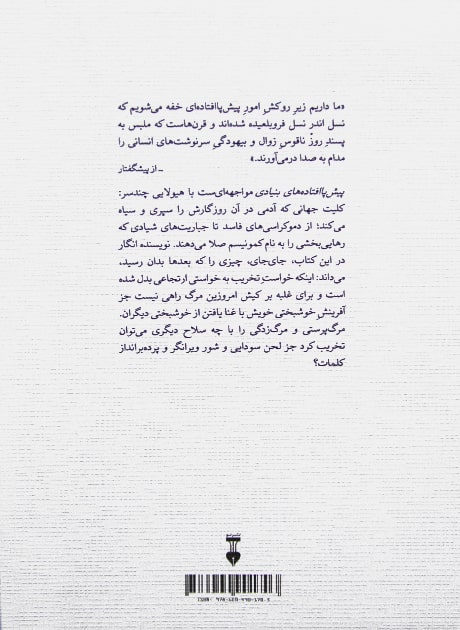 «ما داریم زیرِ روکشِ امورِ پیش‌پاافتاده‌ای خفه می‌شویم که
نسل اندر نسل فروبلعیده شده‌اند و قرن‌هاست که ملبس به
پسندِ روزْ ناقوسِ زوال و بیهودگیِ سرنوشت‌های انسانی را
مدام به صدا درمی‌آورند.»
ـ از پیشگفتار
پیش‌پاافتاده‌های بنیادی مواجهه‌ای‌ست با هیولایی چندسر:
کلیت جهانی که آدمی در آن روزگارش را سپری و سیاه
می‌کند؛ از دموکراسی‌های فاسد تا جباریت‌های شیادی که
رهایی‌بخشی را به نام کمونیسم صلا می‌دهند. نویسنده انگار
در این کتاب، جای‌جای، چیزی را که بعدها بدان رسید،
می‌داند: اینکه خواستِ تخریب به خواستی ارتجاعی بدل شده
است و برای غلبه بر کیش امروزین مرگ راهی نیست جز
آفرینشِ خوشبختی خویش با غنا یافتن از خوشبختی دیگران.
مرگ‌پرستی و مرگ‌زدگی را با چه سلاح دیگری می‌توان
تخریب کرد جز لحن سودایی و شور ویرانگر و پرده‌برانداز
کلمات؟